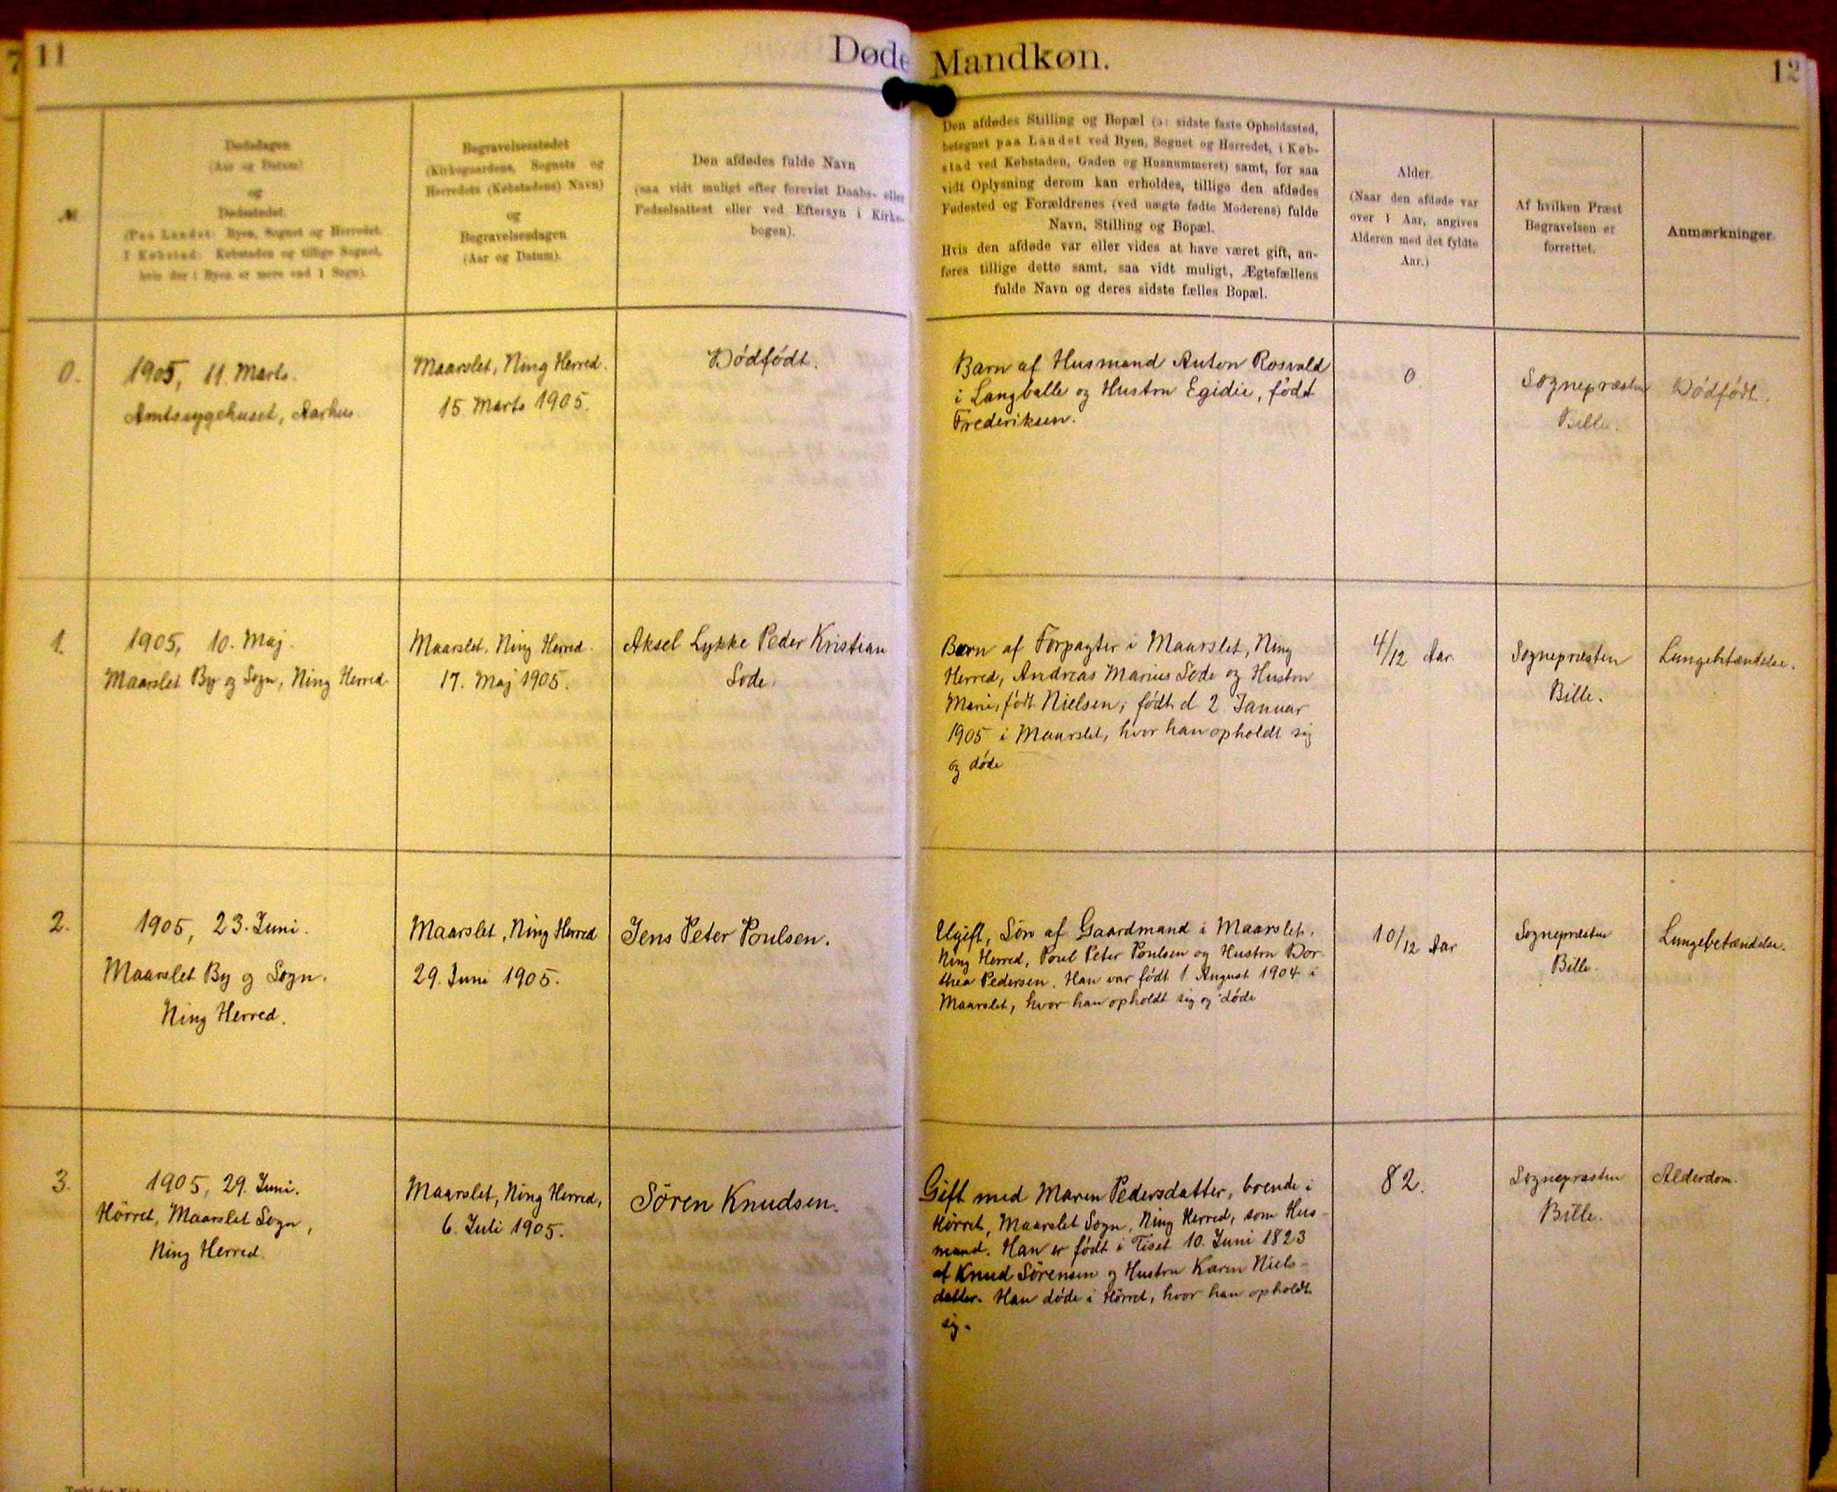 11
Døde Mandkøn.
12
№
Dødsdagen
(Aar og Datum)
og
Dødsstedet.
(Paa Landet: Byen, Sognet og Herredet.
I Købstad: Købstaden og tillige Sognet,
hvis der i Byen er mere end 1 Sogn).
Begravelsesstedet
(Kirkegaardens, Sognets og
Herredets (Købstadens) Navn)
og
Begravelsesdagen
(Aar og Datum).
Den afdødes fulde Navn
(saa vidt muligt efter forevist Daabs- eller
Fødselsattest eller ved Eftersyn i Kirke-
bogen).
Den afdødes Stilling og Bopæl (ɔ: sidste faste Opholdssted,
betegnet paa Landet ved Byen, Sognet og Herredet, i Køb-
stad ved Købstaden, Gaden og Husnummeret) samt, for saa
vidt Oplysning derom kan erholdes, tillige den afdødes
Fødested og Forældrenes (ved uægte fødte Moderens) fulde
Navn, Stilling og Bopæl.
Hvis den afdøde var eller vides at have været gift, an-
føres tillige dette samt, saa vidt muligt, Ægtefællens
fulde Navn og deres sidste fælles Bopæl.
Alder.
(Naar den afdøde var
over 1 Aar, angives
Alderen med det fyldte
Aar.)
Af hvilken Præst
Begravelsen er
forrettet.
Anmærkninger.
0.
1905, 11. Marts.
Amtssygehuset, Aarhus
Maarslet, Ning Herred.
15 Marts 1905.
Dödfödt.
Barn af Husmand Anton Rosvald
i Langballe og Hustru Egidie, födt
Frederiksen.
0
Sognepræsten
Bille.
Dödfödt.
1.
1905, 10. Maj.
Maarslet By og Sogn, Ning Herred
Maarslet, Ning Herred.
17. Maj 1905.
Aksel Lykke Peder Kristian
Sode.
Barn af Forpagter i Maarslet, Ning
Herred, Andreas Marius Sode og Hustru
Marie, födt Nielsen, födt d 2 Januar
1905 i Maarslet, hvor han opholdt sig
og döde
4/12 Aar
Sognepræsten
Bille.
Lungebetændelse.
2.
1905, 23. Juni.
Maarslet By og Sogn.
Ning Herred.
Maarslet, Ning Herred
29. Juni 1905.
Jens Peter Poulsen.
Ugift, Sön af Gaardmand i Maarslet,
Ning Herred, Poul Peter Poulsen og Hustru Dor-
thea Pedersen. Han var födt 1 August 1904 i
Maarslet, hvor han opholdt sig og döde
10/12 Aar
Sognepræsten
Bille.
Lungebetændelse.
3.
1905, 29. Juni.
Hörret, Maarslet Sogn,
Ning Herred.
Maarslet, Ning Herred,
6. Juli 1905.
Sören Knudsen.
Gift med Maren Pedersdatter, boende i
Hörret, Maarslet Sogn, Ning Herred, som Hus-
mand. Han er födt i Tiset 10. Juni 1823
af Knud Sörensen og Hustru Karen Niels-
datter. Han döde i Hörret, hvor han opholdt
sig.
82.
Sognepræsten
Bille.
Alderdom.